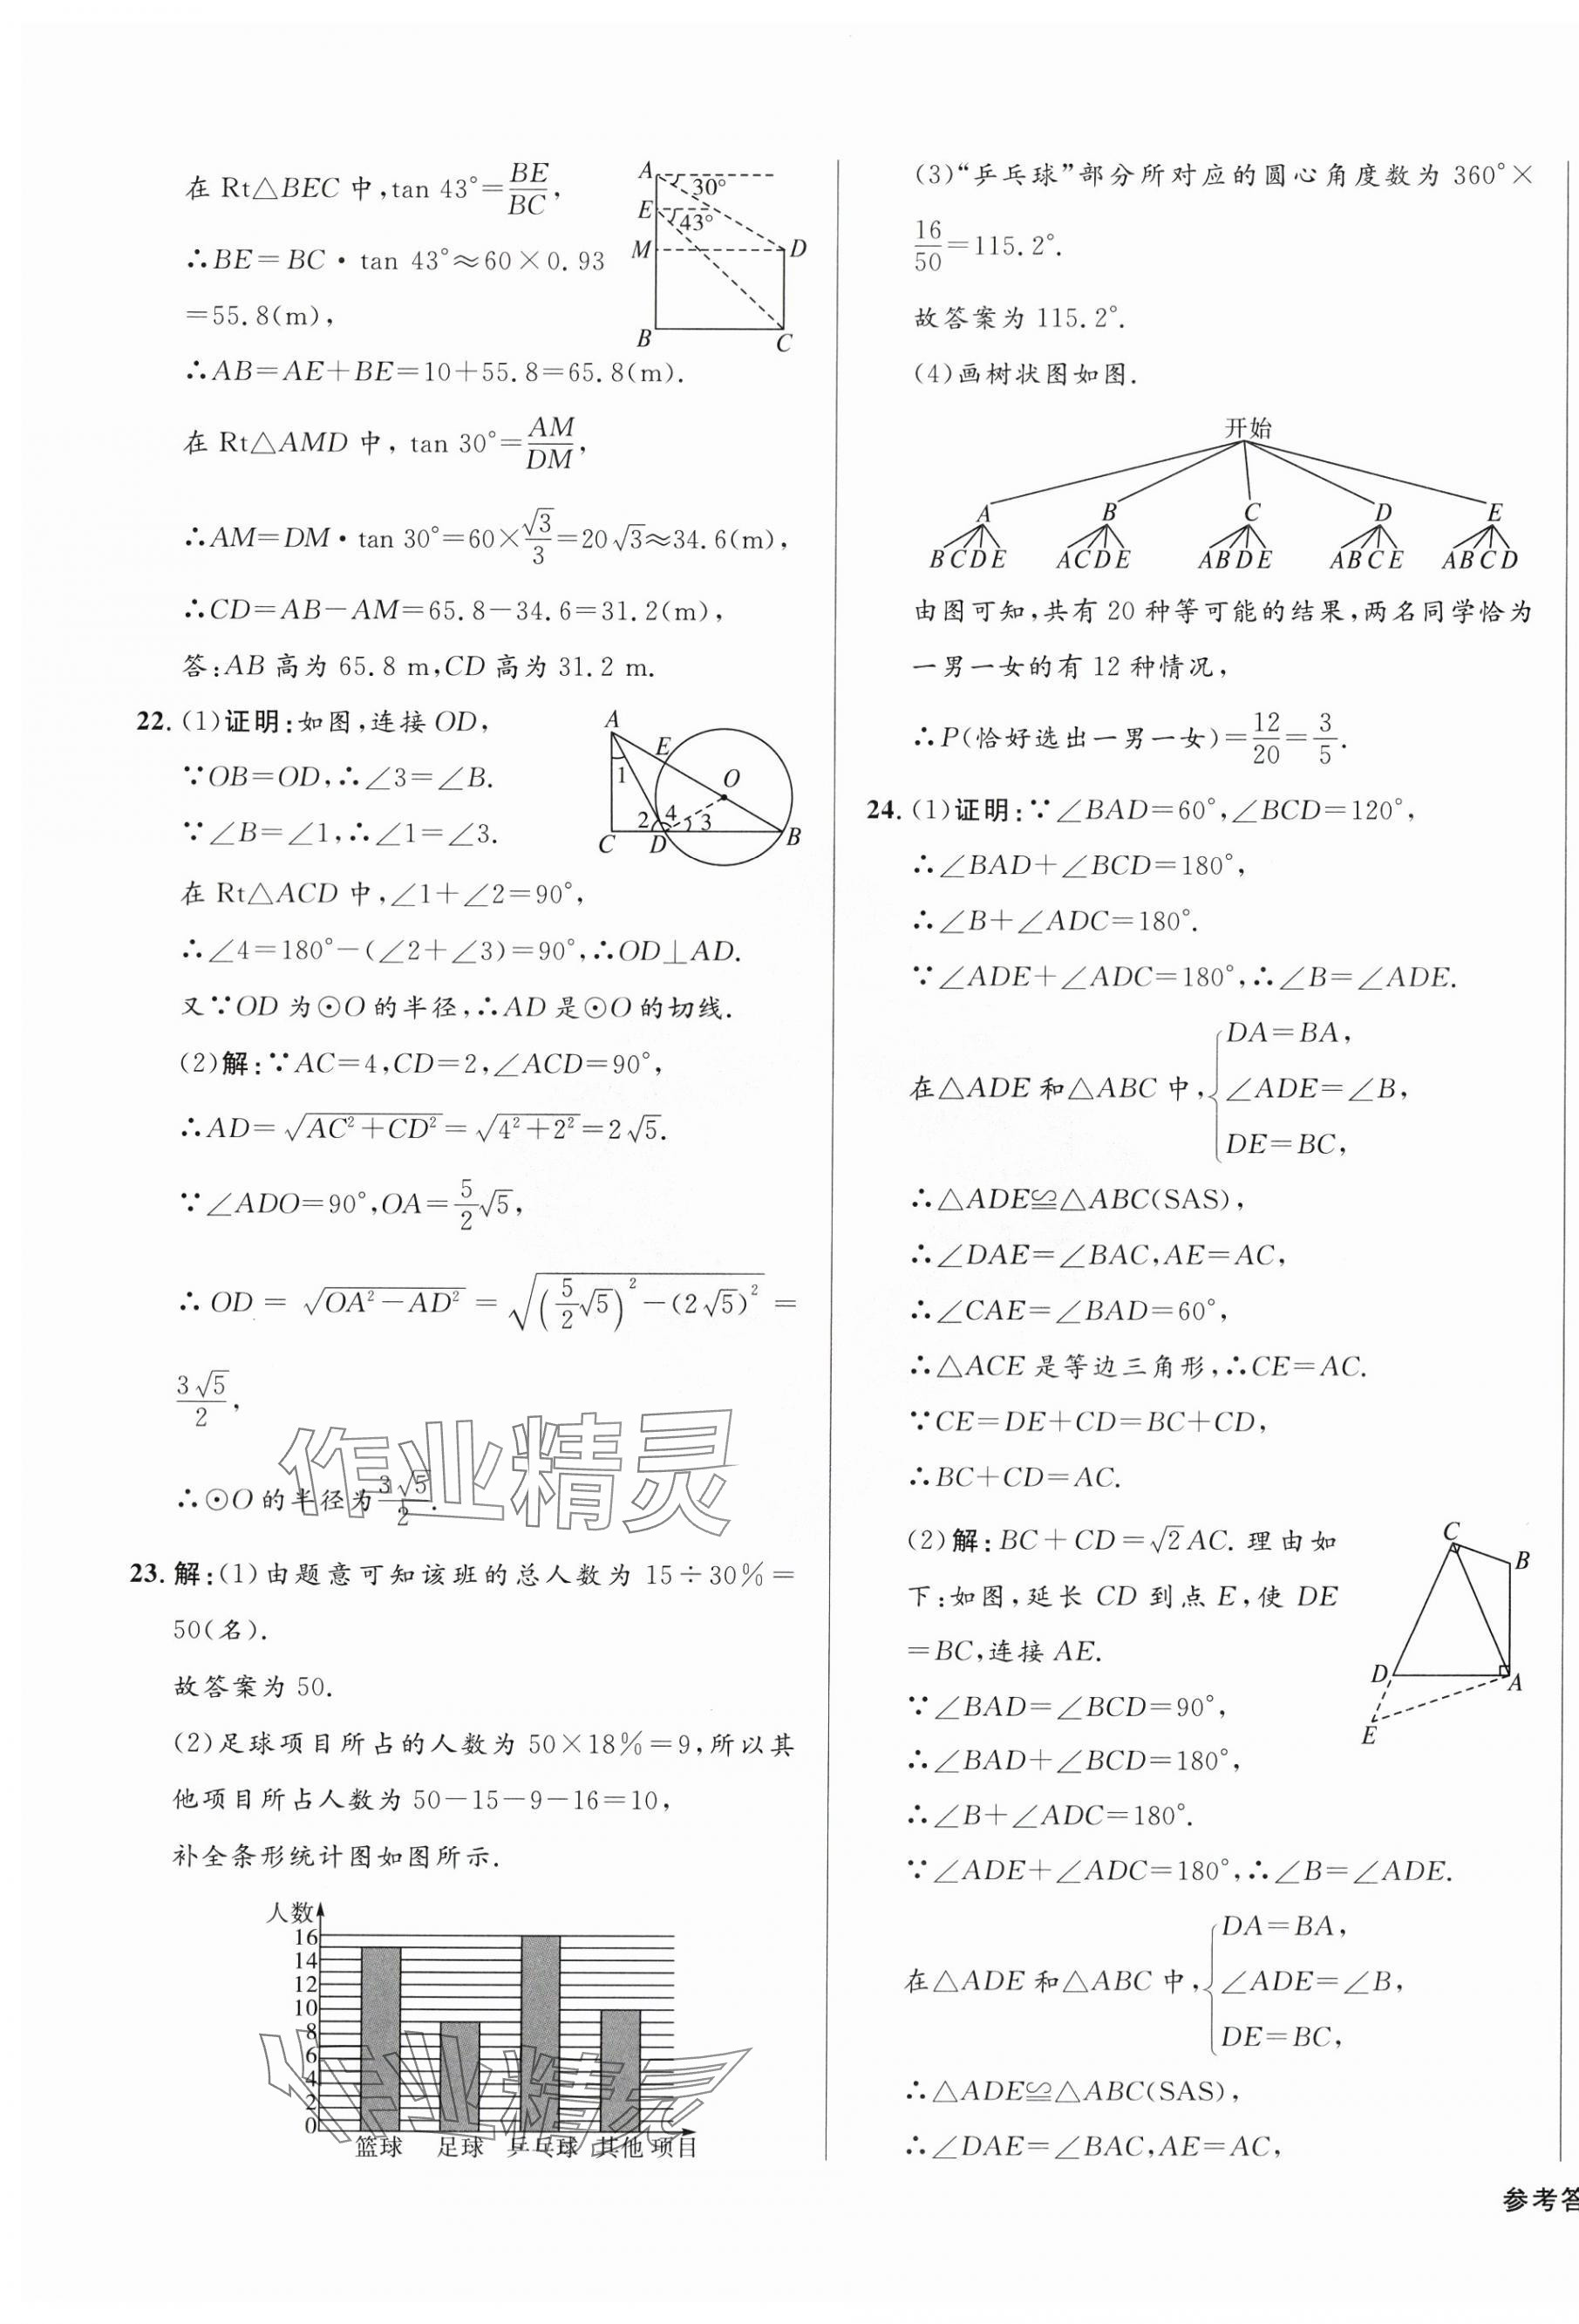 在 Rt△BEC 中,tan 43°=BE/BC,
∴BE=BC·tan 43°≈60×0.93
=55.8(m),
∴AB=AE+BE=10+55.8=65.8(m).
在 Rt△AMD 中, tan 30°=AM/DM,
∴AM=DM·tan 30°=60×√3/3=20√3≈34.6(m),
∴CD=AB-AM=65.8-34.6=31.2(m),
答:AB 高为 65.8 m,CD 高为 31.2 m.
A
30°
E
43°
M
D
B
C
22. (1)证明:如图,连接 OD,
∵OB=OD,∴∠3=∠B.
∵∠B=∠1,∴∠1=∠3.
在 Rt△ACD 中,∠1+∠2=90°,
∴∠4=180°-(∠2+∠3)=90°,∴OD⊥AD.
又∵OD 为⊙O 的半径,∴AD 是⊙O 的切线.
A
E
1
O
2 4 3
C D B
(2)解:∵AC=4,CD=2,∠ACD=90°,
∴AD=√(AC²+CD²)=√(4²+2²)=2√5.
∵∠ADO=90°,OA=5/2√5,
∴OD=√(OA²-AD²)=√((5/2√5)²-(2√5)²)=
3√5/2,
∴⊙O 的半径为3√5/2.
作业精灵
23. 解:(1)由题意可知该班的总人数为 15÷30%=
50(名).
故答案为 50.
(2)足球项目所占的人数为 50×18%=9,所以其
他项目所占人数为 50-15-9-16=10,
补全条形统计图如图所示.
人数
16
14
12
10
8
6
4
2
0
篮球 足球 乒乓球 其他 项目
作业精灵
(3)“乒乓球”部分所对应的圆心角度数为 360°×
16/50=115.2°.
故答案为 115.2°.
(4)画树状图如图.
开始
A B C D E
BCDE ACDE ABDE ABCE ABCD
由图可知,共有 20 种等可能的结果,两名同学恰为
一男一女的有 12 种情况,
∴P(恰好选出一男一女)=12/20=3/5.
24. (1)证明:∵∠BAD=60°,∠BCD=120°,
∴∠BAD+∠BCD=180°,
∴∠B+∠ADC=180°.
∵∠ADE+∠ADC=180°,∴∠B=∠ADE.
DA=BA,
在△ADE 和△ABC 中,{∠ADE=∠B,
DE=BC,
∴△ADE≌△ABC(SAS),
∴∠DAE=∠BAC,AE=AC,
∴∠CAE=∠BAD=60°,
∴△ACE 是等边三角形,∴CE=AC.
∵CE=DE+CD=BC+CD,
∴BC+CD=AC.
(2)解:BC+CD=√2AC. 理由如
下:如图,延长 CD 到点 E,使 DE
=BC,连接 AE.
∵∠BAD=∠BCD=90°,
∴∠BAD+∠BCD=180°,
∴∠B+∠ADC=180°.
∵∠ADE+∠ADC=180°,∴∠B=∠ADE.
C
B
D
A
E
DA=BA,
在△ADE 和△ABC 中,{∠ADE=∠B,
DE=BC,
∴△ADE≌△ABC(SAS),
∴∠DAE=∠BAC,AE=AC,
参考答